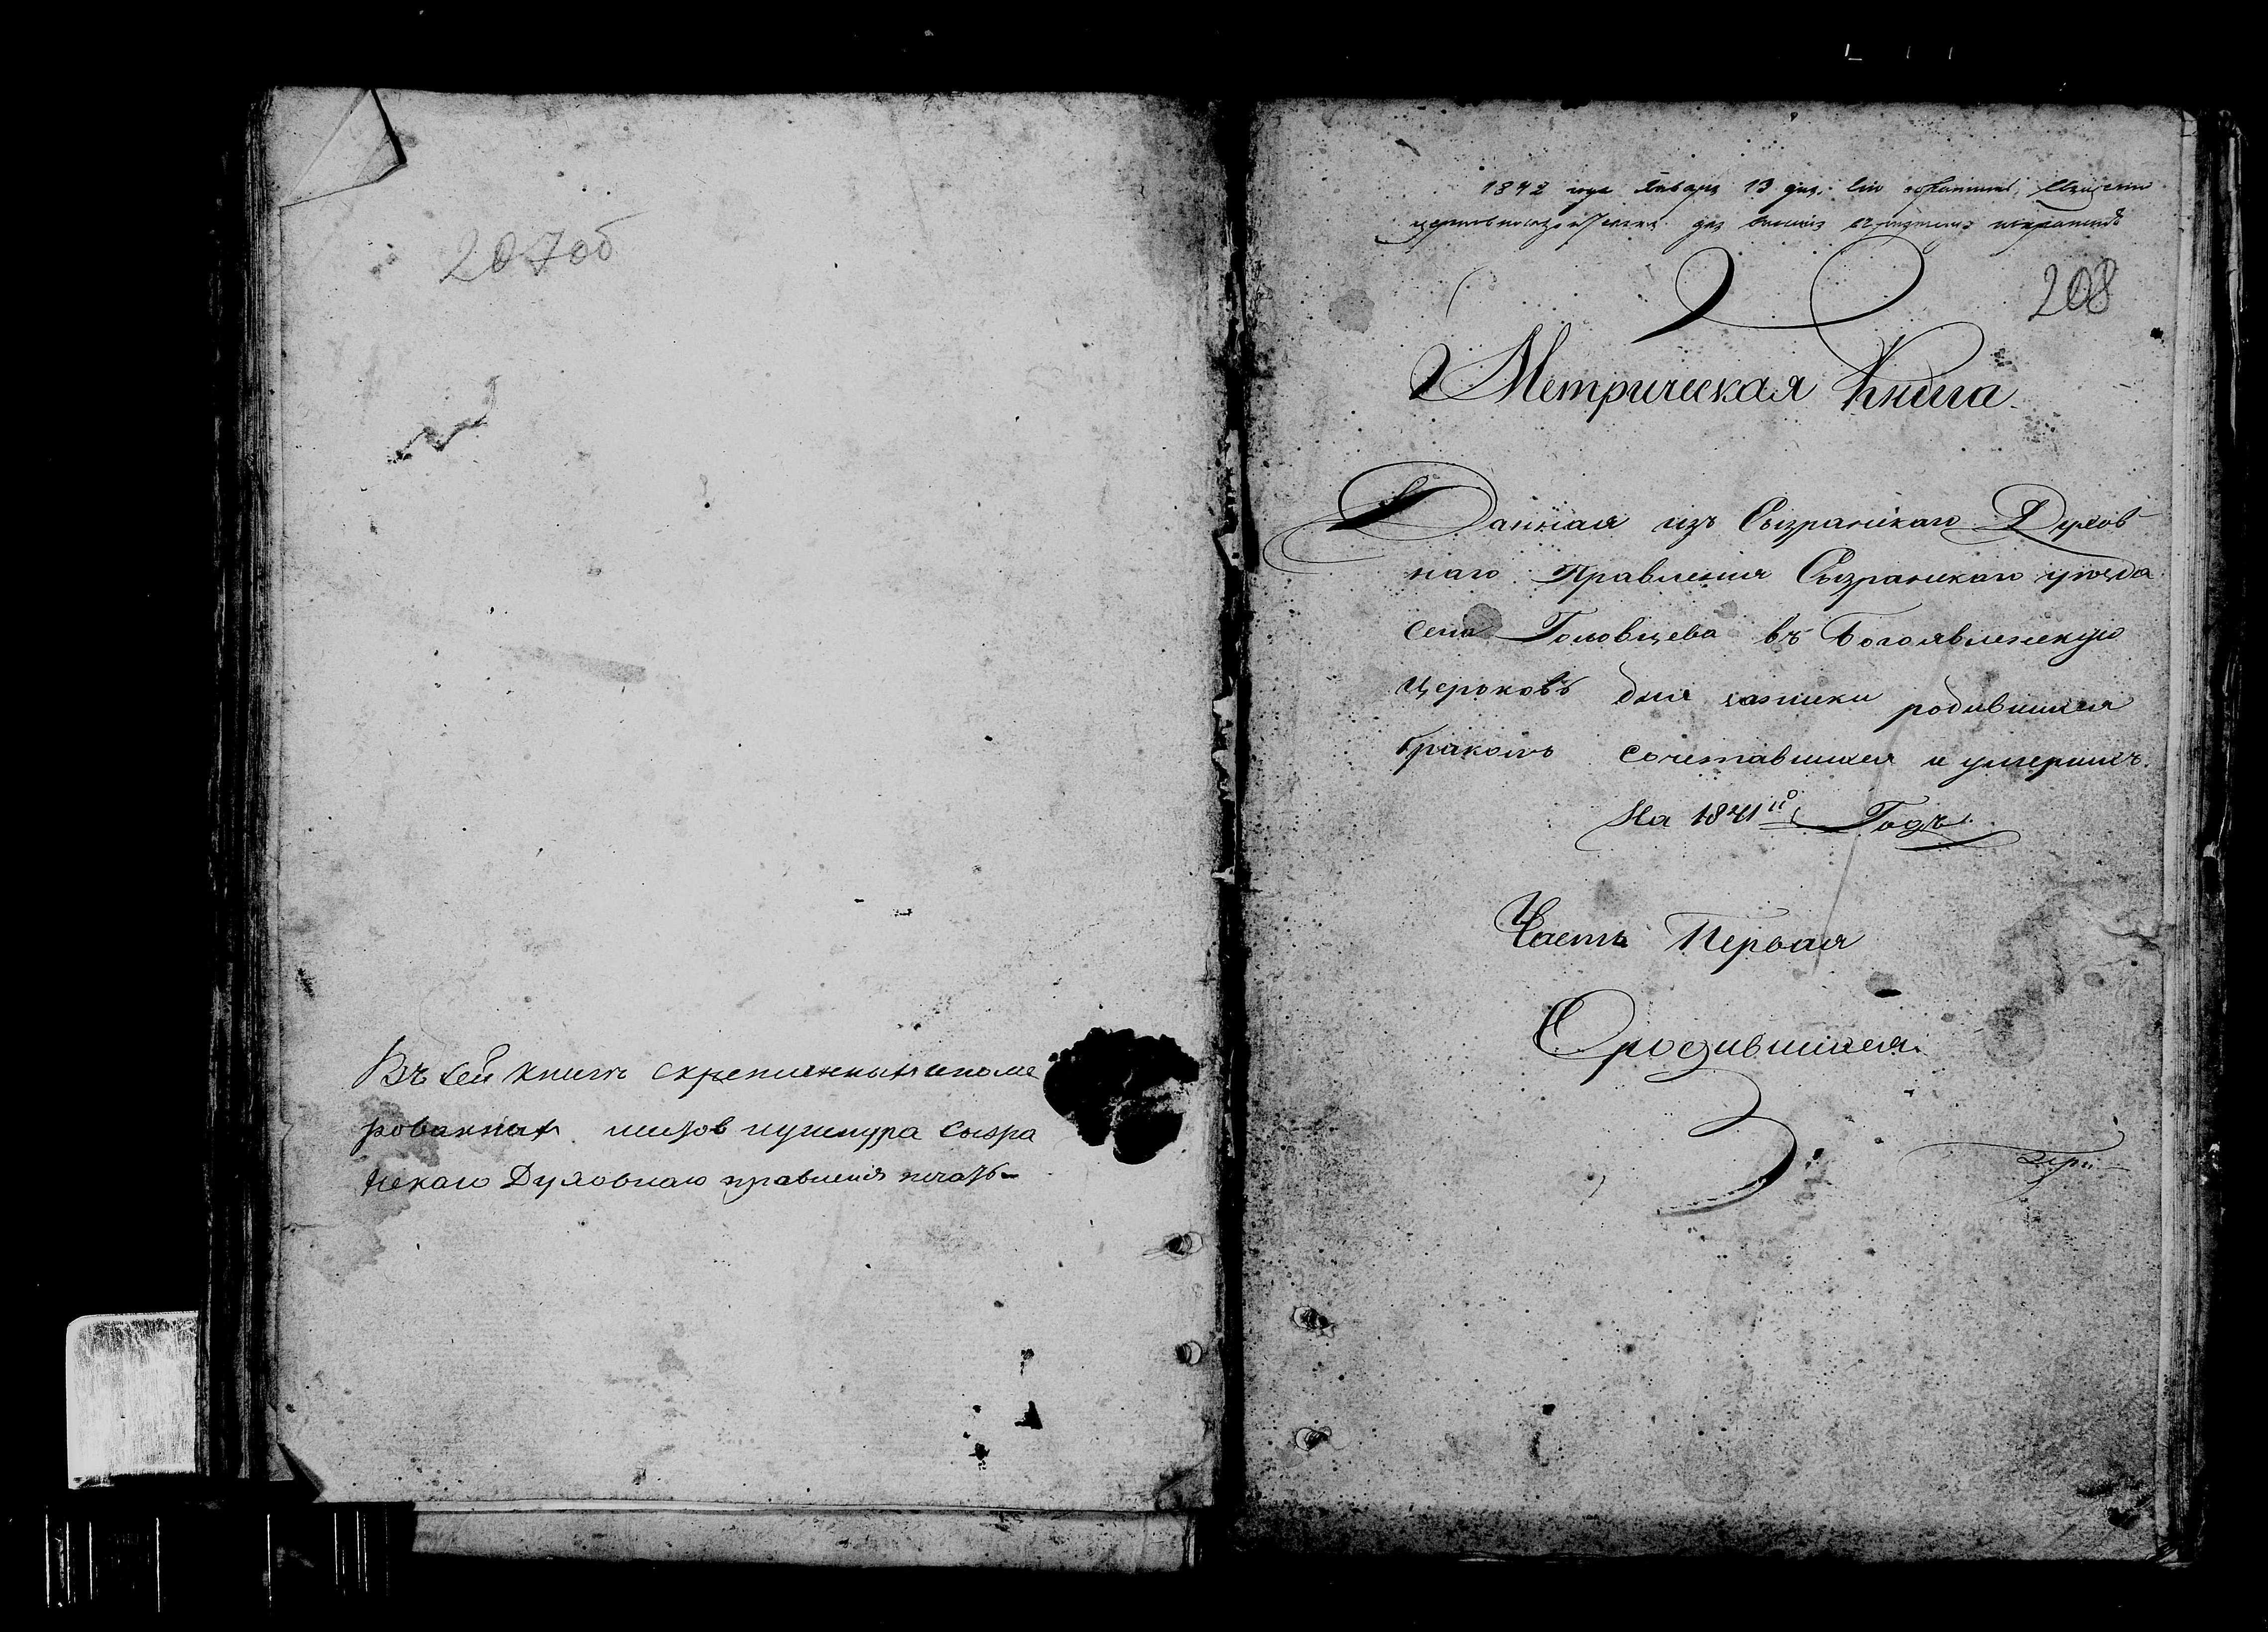 207об
Въ сей книгѣ скрепленныхъ и номе
рованных листов шнура Сызра
нскаго Духовнаго правления печать
1842 года Января 13 дня
208
Метрическая Книга.
Данная изъ Сызранскаго Духов
наго Правления Сызранскаго уѣзда
села Головцева въ Богоявленскую
Церьковь для записки родившихся
бракомъ сочетавшихся и умершихъ.
На 1841й Годъ.
Часть Первая
О родившихся.